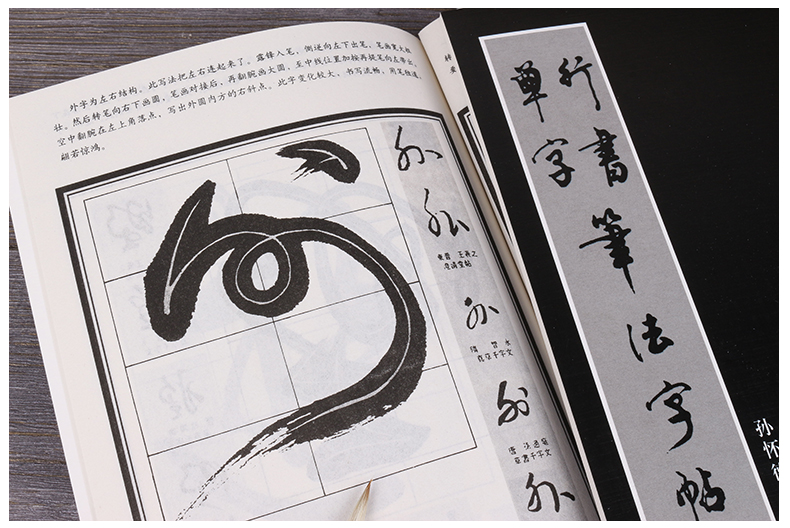 外字为左右结构。此写法把左右连起来了。露锋入笔，侧逆向左下出笔，笔画宽大粗
壮。然后转笔向右下画圆，笔画对接后，再翻腕画大圆，至中线位置加按再提笔向左带出。
空中翻腕在左上角落点，写出外圆内方的右斜点。此字变化较大，书写流畅，用笔粗遒，
翩若惊鸿。
外
外
外
東晉 王羲之
澄清堂帖
外
隋 智永
真草千字文
外
唐 孫過庭
草書千字文
外
行書
單字
筆法字帖
孙怀